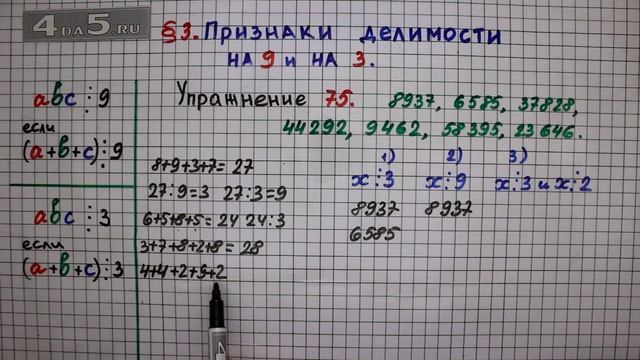 4DA5.RU
§3. Признаки делимости
на 9 и на 3.
abc ⋮ 9
если
(a+b+c) ⋮ 9
abc ⋮ 3
если
(a+b+c) ⋮ 3
Упражнение 75. 8937, 6585, 37828,
44292, 9462, 58395, 23646.
8+9+3+7= 27
27:9=3 27:3=9
6+5+8+5= 24 24:3
3+7+8+2+8= 28
4+4+2+9+2
1) 2) 3)
x⋮3 x⋮9 x⋮3 и x⋮2
8937 8937
6585